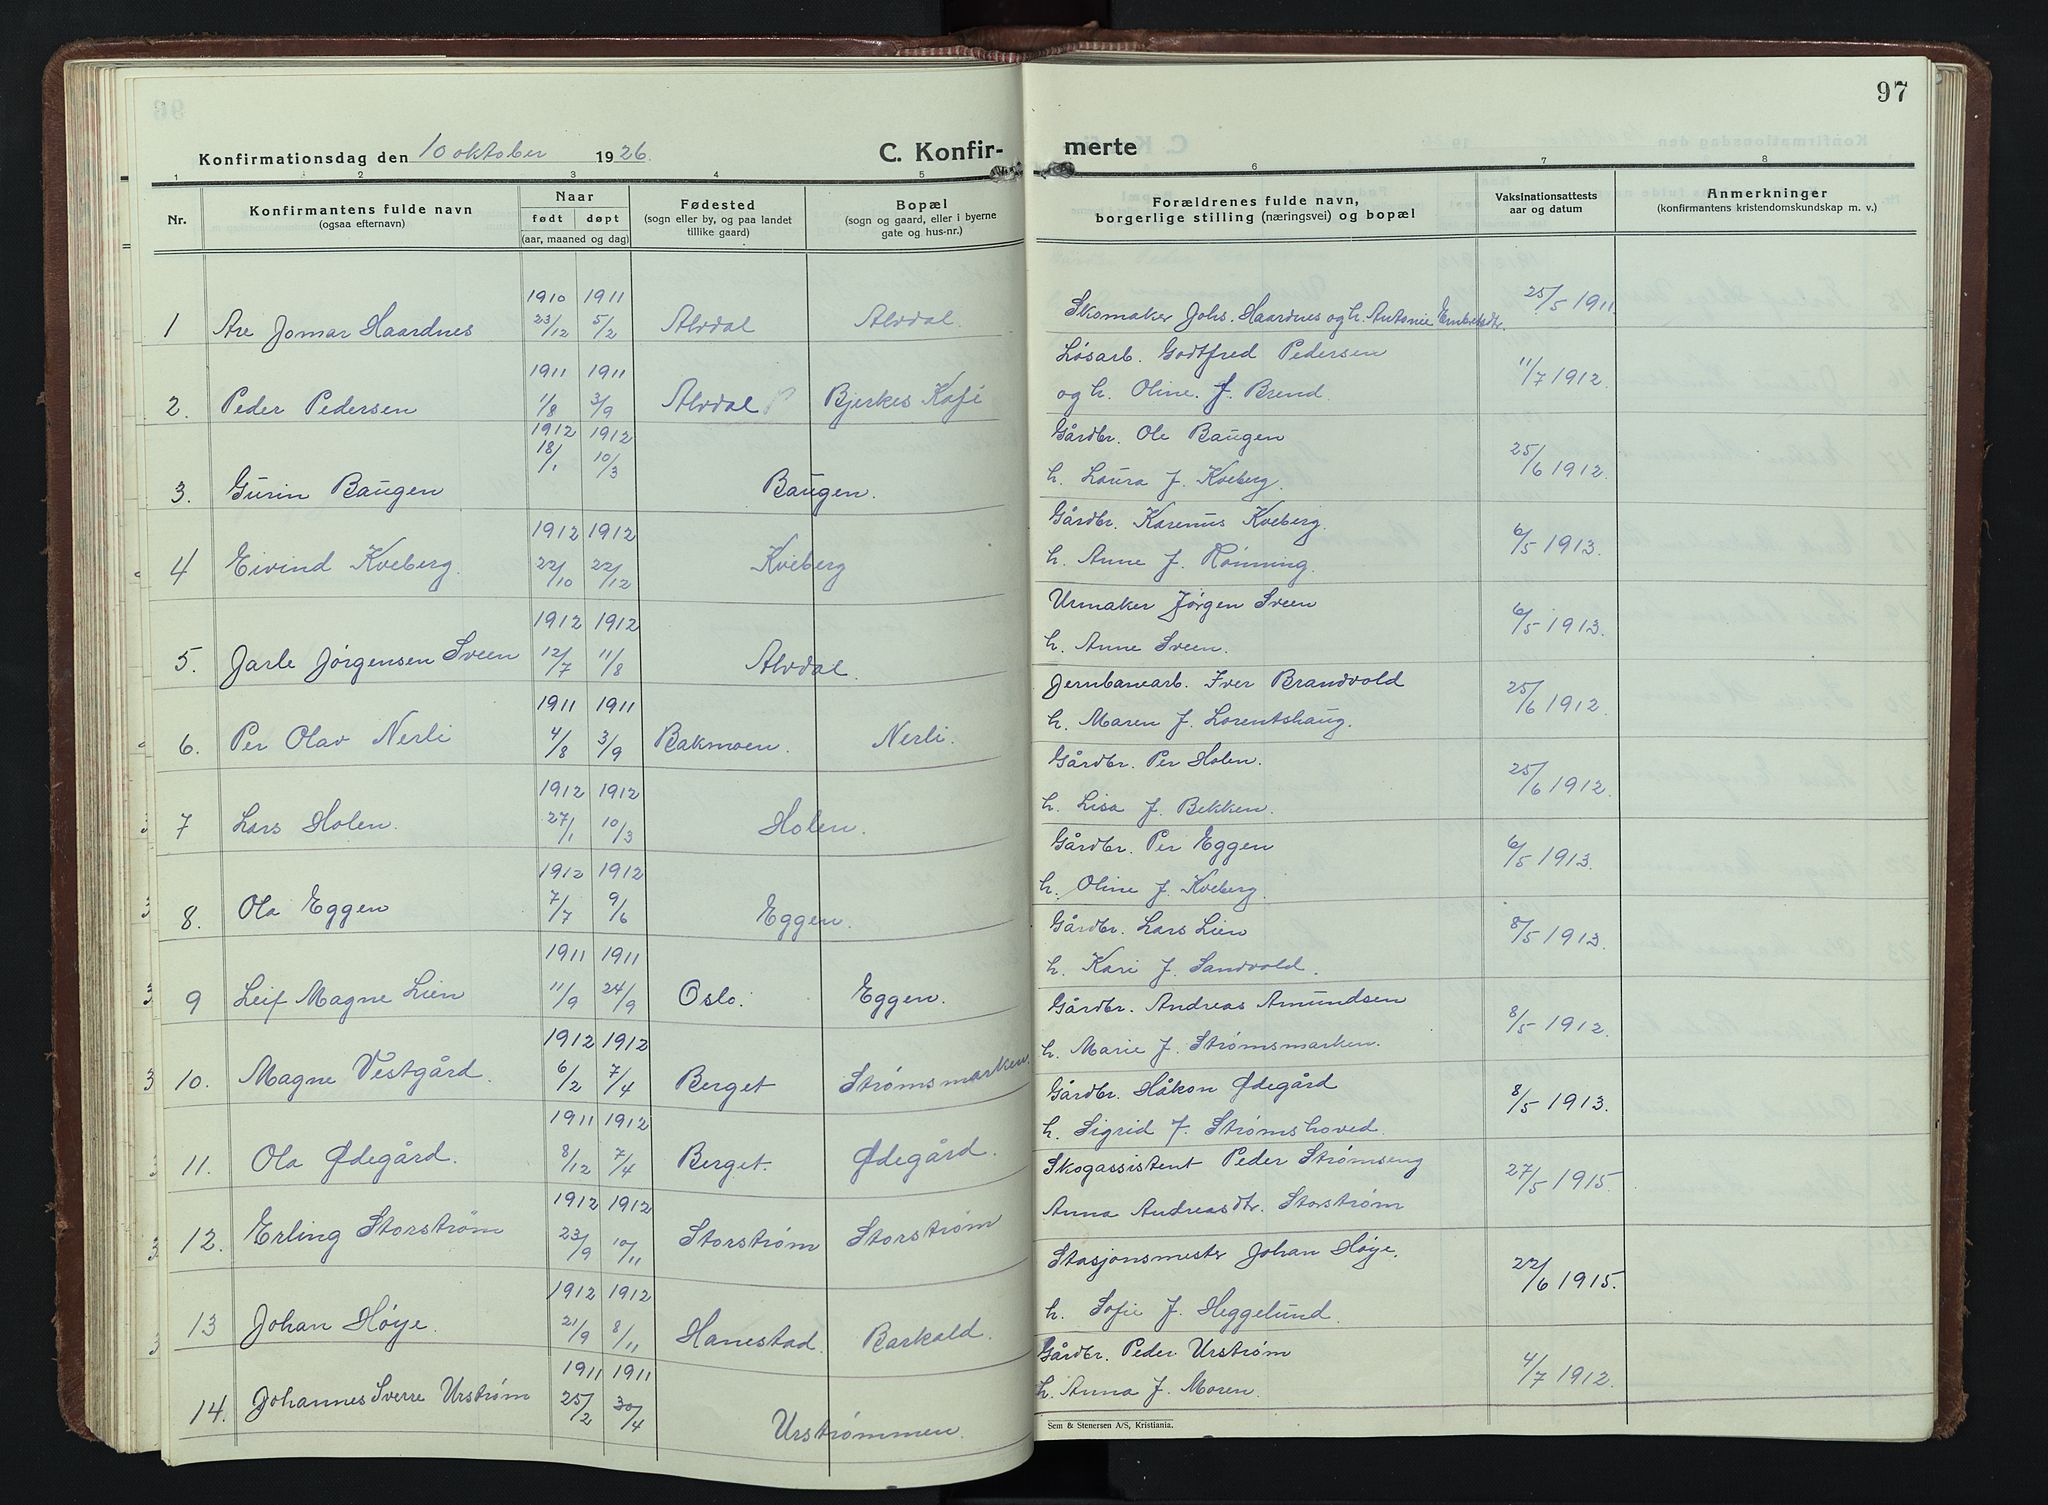 97
Konfirmationsdag den 10 oktober 1926.
C. Konfirmerte
1 2 3 4 5 6 7 8
Nr.
Konfirmantens fulde navn
(ogsaa efternavn)
Naar
født døpt
(aar, maaned og dag)
Fødested
(sogn eller by, og paa landet
tillike gaard)
Bopæl
(sogn og gaard, eller i byerne
gate og hus-nr.)
Forældrenes fulde navn,
borgerlige stilling (næringsvei) og bopæl
Vaksinationsattests
aar og datum
Anmerkninger
(konfirmantens kristendomskundskap m. v.)
1910 1911
1 Are Jomar Haardnes 23/12 5/2 Alvdal Alvdal.
Skomaker Johs. Haardnes og h. Antonie Embretsdtr. 25/5 1911
1911 1911
2. Peder Pedersen 1/8 3/9 Alvdal Bjerkes Kafé
Løsarb. Godtfred Pedersen
og h. Oline. f. Brend. 11/7 1912.
1912 1912
3. Gurin Baugen 18/1 10/3 Baugen.
Gårdbr. Ole Baugen
h. Laura f. Kveberg. 25/6 1912.
1912 1912
4 Eivind Kveberg. 22/10 22/12 Kveberg
Gårdbr. Karenus Kveberg.
h. Anne f. Rønning. 6/5 1913.
1912 1912
5. Jarle Jørgensen Sveen 12/7 11/8 Alvdal.
Urmaker Jørgen Sveen
h. Anne Sveen. 6/5 1913.
1911 1911
6. Per Olav Nerli 4/8 3/9 Bakmoen. Nerli.
Jernbanearb. Iver Brandvold
h. Maren f. Lorentshaug. 25/6 1912.
1912 1912
7 Lars Holen. 27/1 10/3 Holen.
Gårdbr. Per Holen.
h. Lisa f. Bekken. 25/6 1912.
1912 1912
8. Ola Eggen 7/7 9/6 Eggen.
Gårdbr. Per Eggen
h. Oline f. Kveberg. 6/5 1913.
1911 1911
9 Leif Magne Lien 11/9 24/9 Oslo. Eggen.
Gårdbr. Lars Lien
h. Kari f. Sandvold. 8/5 1913.
1912 1912
10. Magne Vestgård. 6/2 7/4 Berget Strømsmarken.
Gårdbr. Andreas Amundsen
h. Marie f. Strømsmarken. 8/5 1912.
1911 1912
11. Ola Ødegård. 8/12 7/4 Berget. Ødegård.
Gårdbr. Håkon Ødegård
h. Sigrid f. Strømshoved. 8/5 1913.
1912 1912
12. Erling Storstrøm 23/9 10/11 Storstrøm Storstrøm
Skogassistent Peder Strømseng
Anna Andreasdtr. Storstrøm 27/5 1915.
1912 1912
13 Johan Høye. 21/9 8/11 Hanestad. Barkald.
Stasjonsmester Johan Høye.
h. Sofie f. Heggelund. 22/6 1915.
1911 1911
14. Johannes Sverre Urstrøm 25/2 30/4 Urstrømmen.
Gårdbr. Peder Urstrøm
h. Anna f. Moren. 4/7 1912.
Sem & Stenersen A/S, Kristiania.